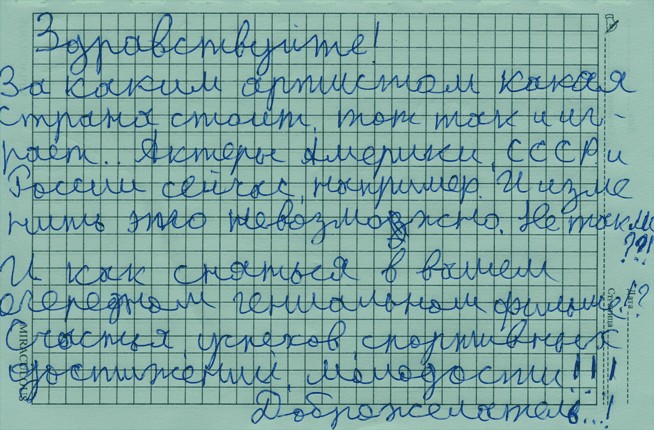 Здравствуйте!
За каким артистом какая
страна стоит, тот так и иг-
рает.. Актеры Америки, СССР и
России сейчас, например. И изме
нить это невозможно. Не так ли
??!!
И как сняться в вашем
очередном гениальном фильме??
Счастья, успехов, спортивных
достижений, молодости!!!
Доброжелатель...!
MIRACULOUS
Страница
Дата